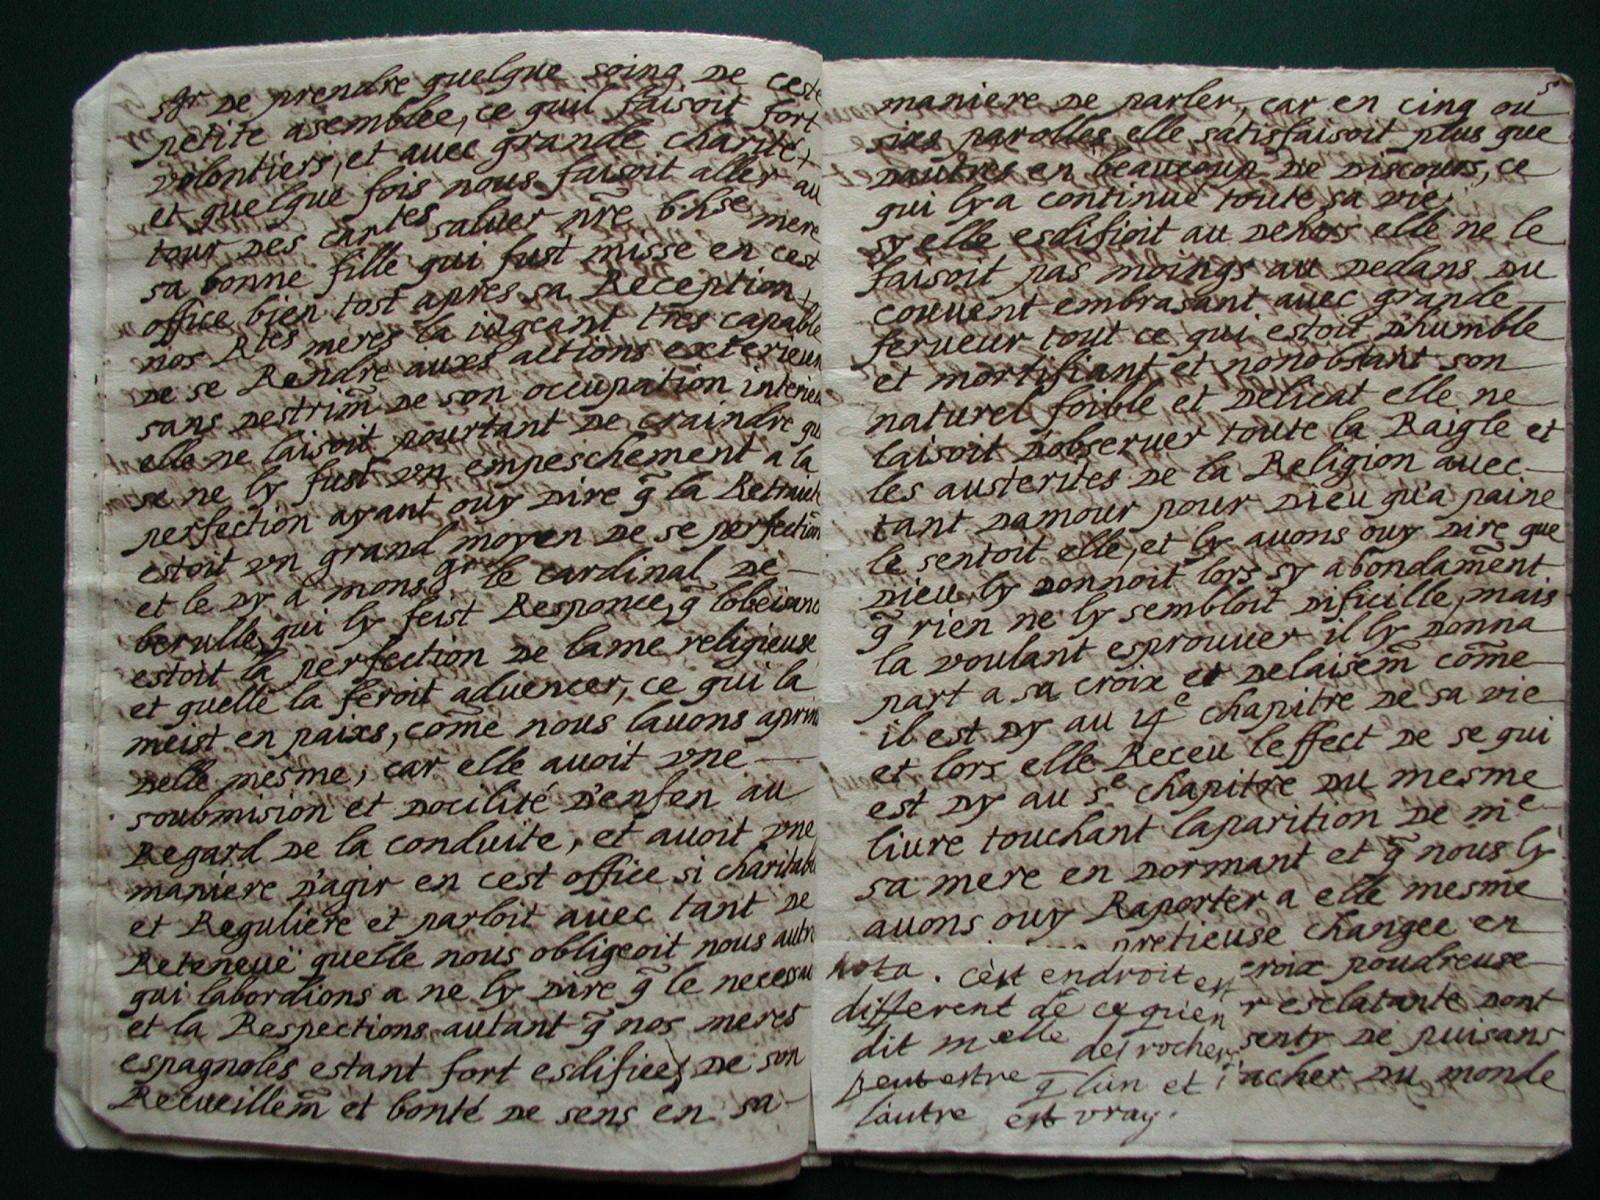 sgr de prendre quelque soing de ceste
petite asemblee, ce quil faisoit fort
volontiers, et auec grande charité,
et quelque fois nous faisoit aller au
tour des cartes saluer nr̃e bhse mere
sa bonne fille qui fust misse en cest
office bien tost apres sa Reception,
nos Rtes meres la iugeant tres capable
de se Rendre auxs actions exterieur
sans destrim̃ de son occupation interieu
elle ne laisoit pourtant de craindre qu
se ne ly fust vn empeschement a la
perfection ayant ouy dire q̃ la Retraict
estoit vn grand moyen de se perfection
et le dy a monsgr le cardinal de
berulle qui ly feist Responce, q̃ lobeisanc
estoit la perfection de lame religieuse
et quelle la feroit aduencer, ce qui la
meist en paixs, com̃e nous lauons aprins
delle mesme, car elle auoit vne
soubmision et docilité d'enfen au
Regard de la conduite, et auoit vne
maniere d'agir en cest office si charitable
et Reguliere et parloit auec tant de
Reteneue quelle nous obligeoit nous autre
qui labordions a ne ly dire q̃ le necessai
et la Respections autant q̃ nos meres
espagnoles estant fort esdifiees de son
Recueillem̃ et bonté de sens en sa
5
maniere de parler, car en cinq ou
sixs parolles elle satisfaisoit plus que
dautres en beaucoup de discours, ce
qui ly a continué toute sa vie,
sy elle esdifioit au dehos elle ne le
faisoit pas moings au dedans du
couuent embrasant auec grande
ferueur tout ce qui estoit d'humble
et mortifiant et nonobstant son
naturel foible et delicat elle ne
laisoit dobseruer toute la Raigle et
les austerites de la Religion auec
tant damour pour dieu qu'a paine
le sentoit elle, et ly auons ouy dire que
dieu ly donnoit lors sy abondam̃ent
q̃ rien ne ly sembloit dificille, mais
la voulant esprouuer il ly donna
part a sa croix et delaisem̃ com̃e
il est dy au 4e chapitre de sa vie
et lors elle Receu leffect de se qui
est dy au 5e chapitre du mesme
liure touchant laparition de me
sa mere en dormant et q̃ nous ly
auons ouy Raporter a elle mesme
pretieuse changee en
croix poudreuse
r esclatante dont
senty de puisans
acher du monde
nota . cest endroit est
different de ce qu'en
dit melle des rochers
peutestre q̃ l'un et
lautre est vray.